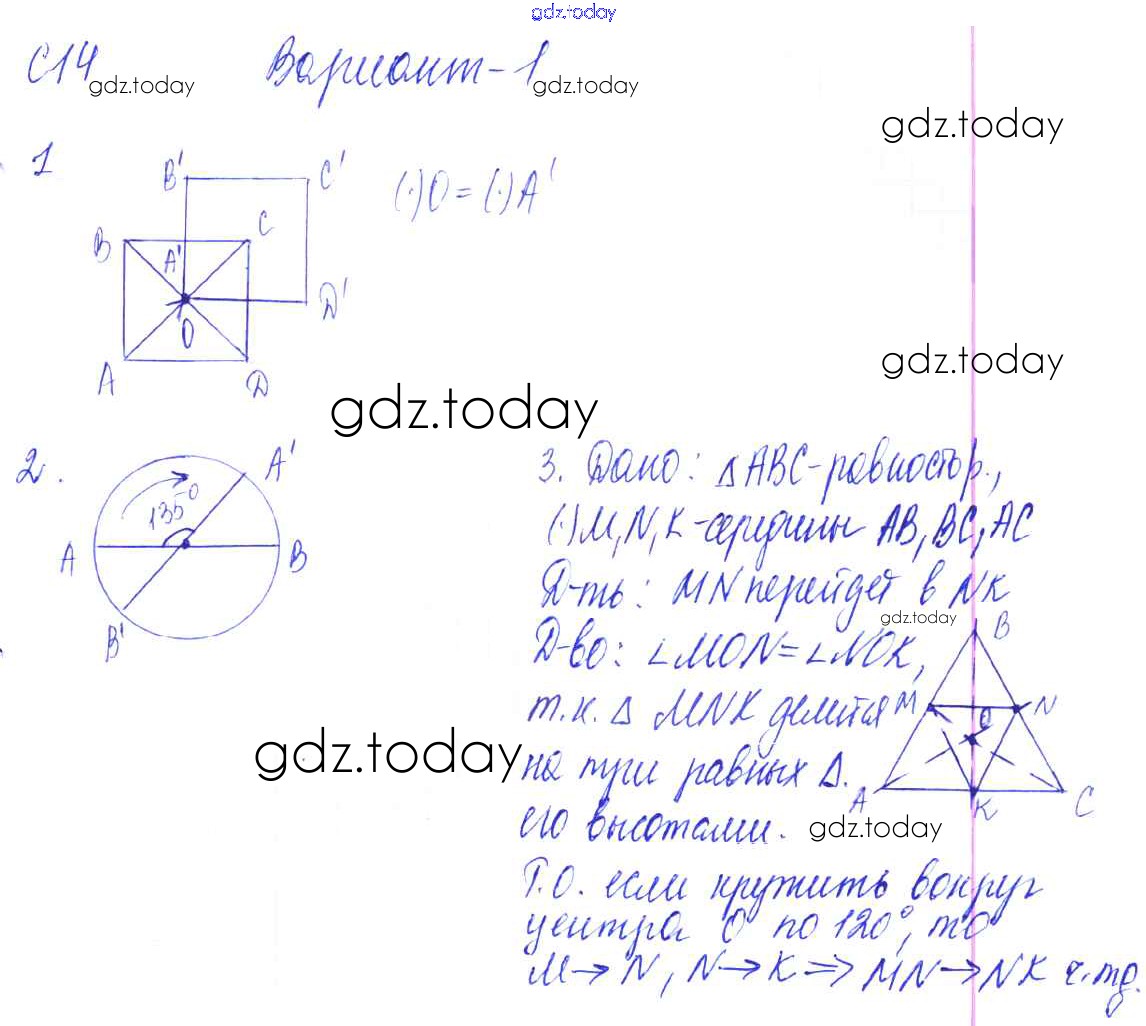 gdz.today
С14 Вариант-1
gdz.today gdz.today
gdz.today
1
B' C' (·)O = (·)A'
B C
A'
D'
O
A D
gdz.today
gdz.today
2. A'
135°
A B
B'
3. Дано: △ABC-равностор.,
(·)M,N,K-середины AB,BC,AC
Д-ть: MN перейдет в NK
gdz.today
B
Д-во: ∠MON=∠NOK,
т.к. △ MNK делится
M N
O
gdz.today
на три равных △.
A K C
его высотами.
gdz.today
Т.О. если кружить вокруг
центра O по 120°, то
M→N, N→K ⇒ MN→NK ч.тд.